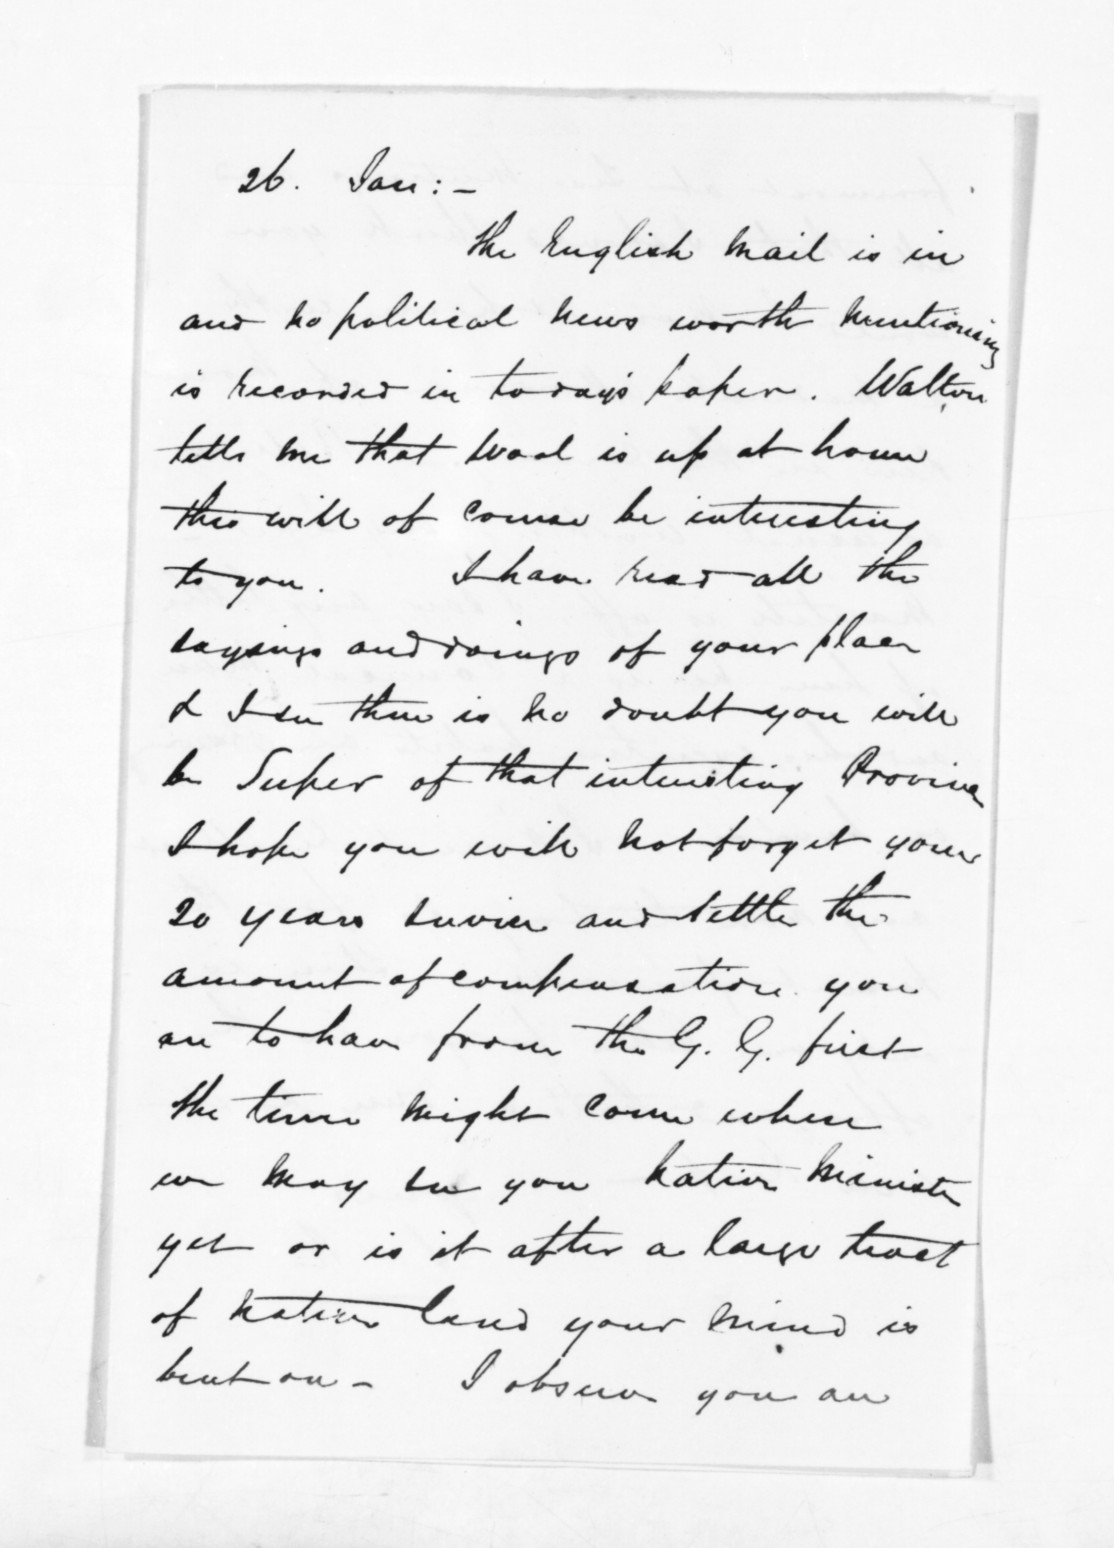 26. Jan:-
The English Mail is in
and no political news worth mentioning
is recorded in todays paper. Walton
tells me that wool is up at home
this will of course be interesting
to you. I have read all the
sayings and doings of your place
& I see there is no doubt you will
be Super of that interesting Province
I hope you will not forget your
20 years service and settle the
amount of compensation you
are to have from the G. G. first
the time might come when
we may see you Native Minister
yet or is it after a large tract
of Native land your mind is
bent on - I observe you are